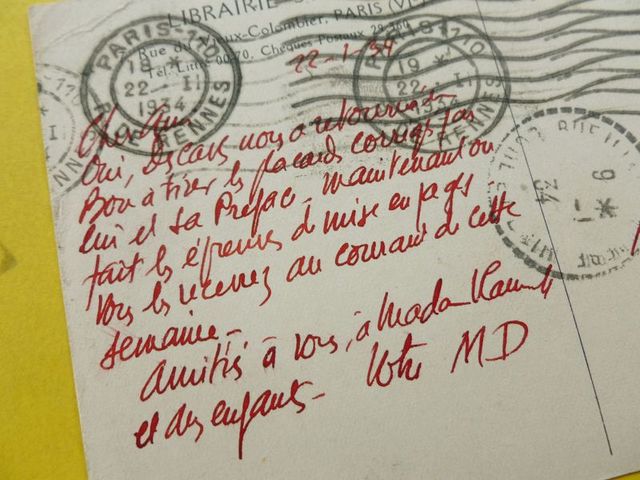 LIBRAIRIE
Rue du Vieux-Colombier, PARIS (VI
Tél. Littré 00-70, Chèques Postaux 29-360
22-1-34
PARIS-110
22 - I
1934
RENNES
PARIS-110
19 *
22 - I
1934
RENNES
Cher Ami
Oui, Descaves nous a retourné en
Bon à tirer les placards corrigés par
lui et sa Préface - maintenant on
fait les épreuves de mise en pages
Vous les recevrez au courant de cette
semaine -
Amitiés à vous, à Madame
et des enfants - Votre MD